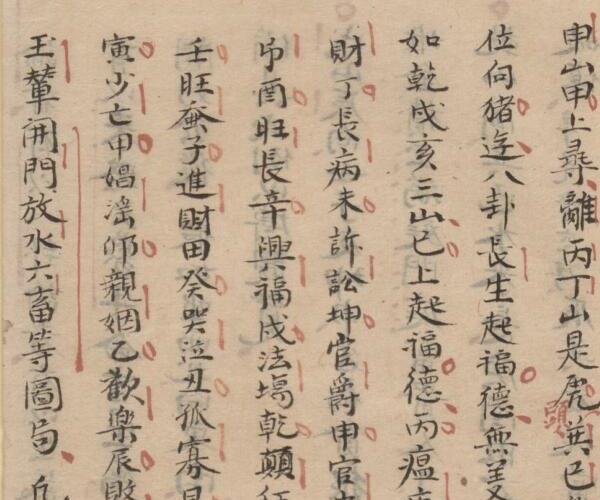 申山甲上尋離丙丁山是虎頭巽巳
位向猪迯八卦長生起福德無差
如乾戌亥三山巳上起福德丙瘟
財丁長病未訴訟坤官爵申官
夘酉旺長辛興福戌法塲乾顛
壬旺蚕子進財田癸哭泣丑孤寡
寅少亡甲娼滛夘親姻乙歡樂辰敗
玉輦開門放水六畜等圖局